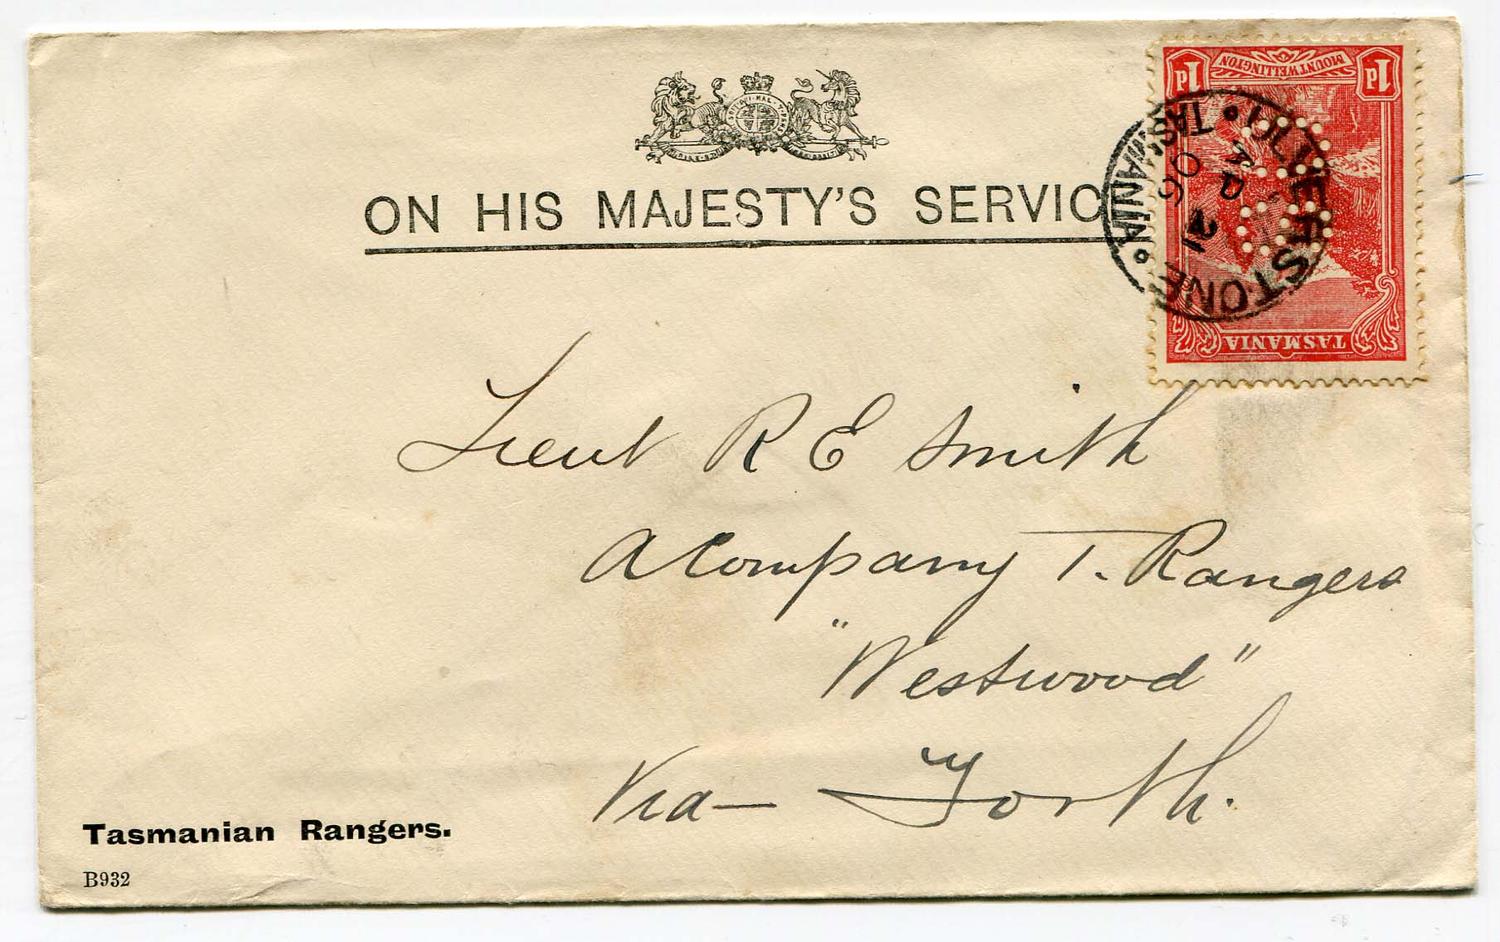 ON HIS MAJESTY'S SERVIC
1d MOUNT WELLINGTON 1d
TASMANIA
ULVERSTONE
TASMANIA
21
06
Lieut R E Smith
A Company T. Rangers
"Westwood"
Via — Forth.
Tasmanian Rangers.
B932